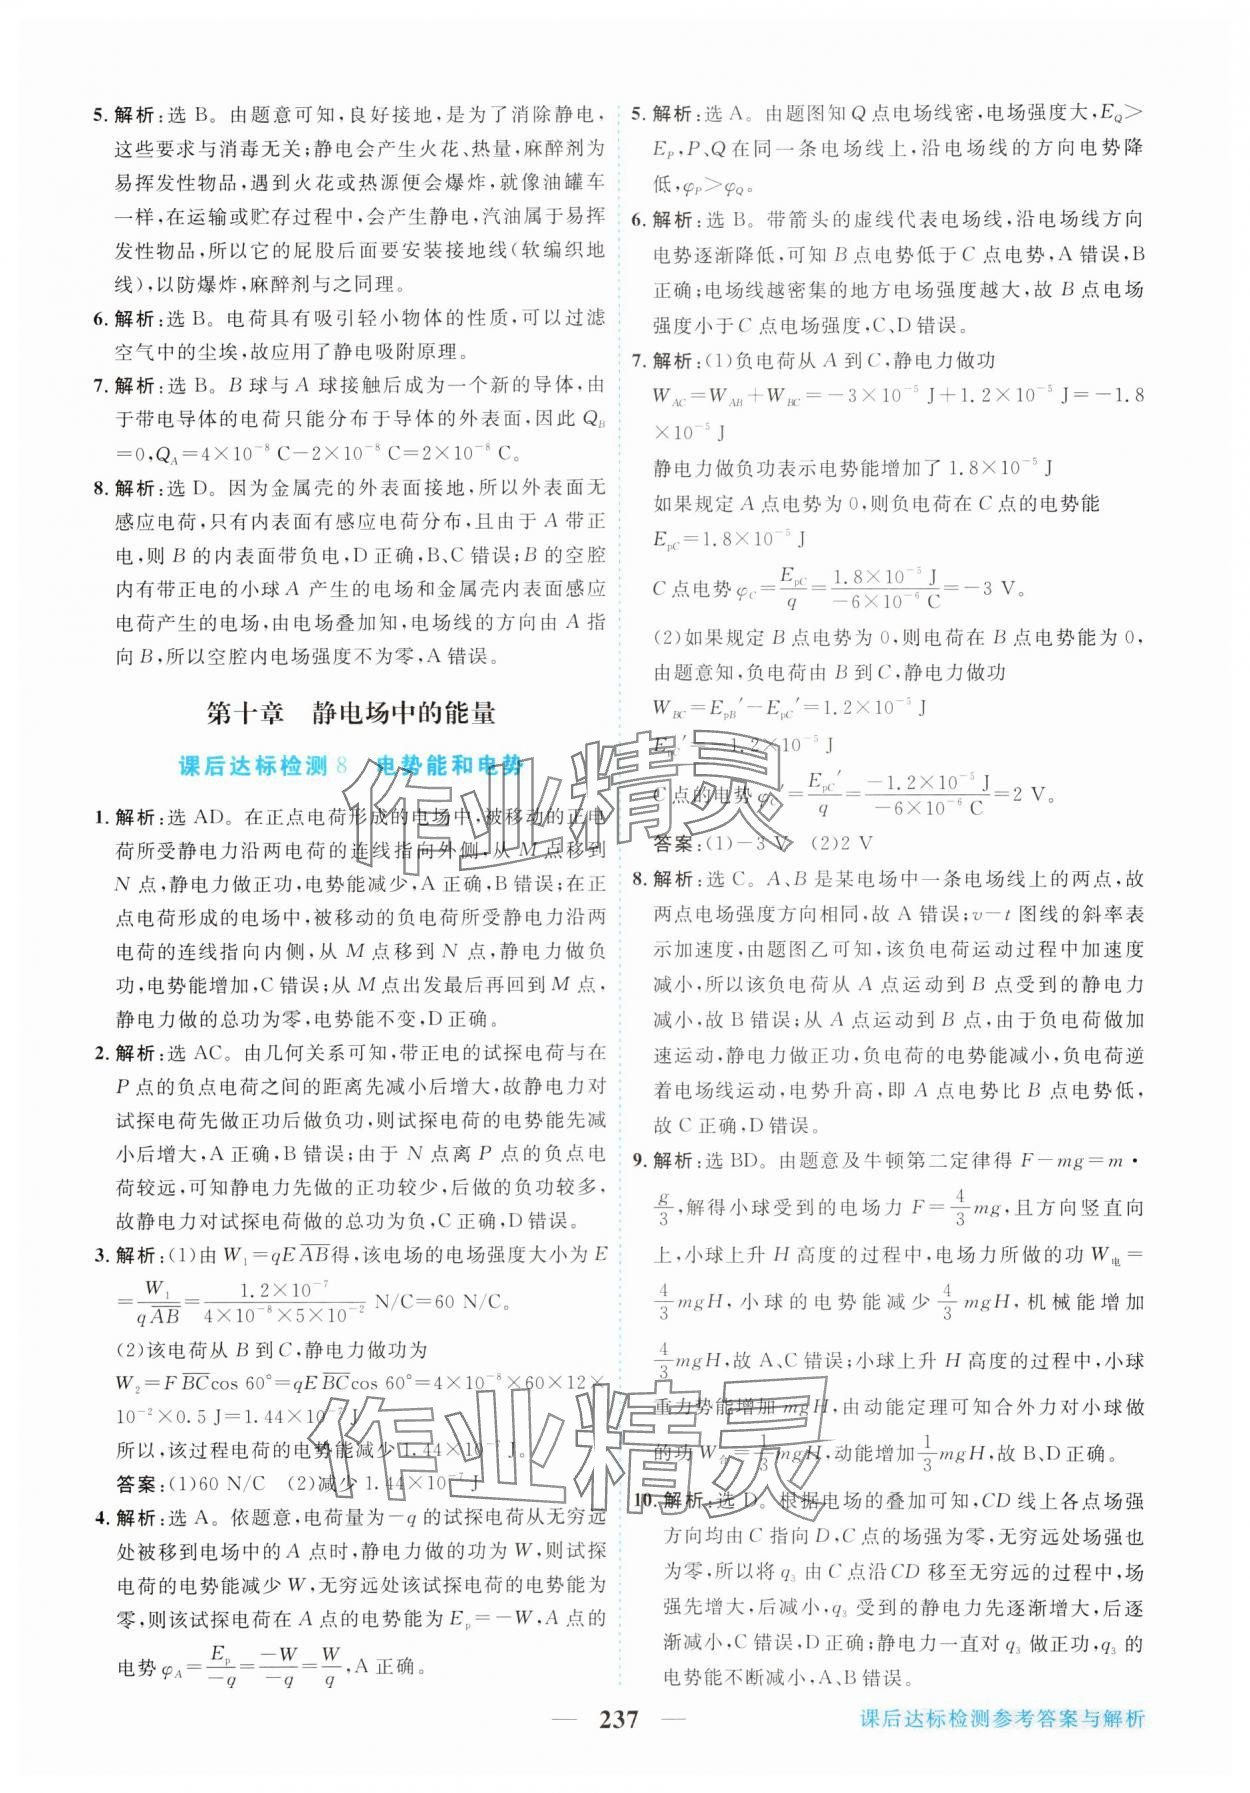 5. 解析:选 B。由题意可知,良好接地,是为了消除静电,
这些要求与消毒无关;静电会产生火花、热量,麻醉剂为
易挥发性物品,遇到火花或热源便会爆炸,就像油罐车
一样,在运输或贮存过程中,会产生静电,汽油属于易挥
发性物品,所以它的屁股后面要安装接地线(软编织地
线),以防爆炸,麻醉剂与之同理。
6. 解析:选 B。电荷具有吸引轻小物体的性质,可以过滤
空气中的尘埃,故应用了静电吸附原理。
7. 解析:选 B。B 球与 A 球接触后成为一个新的导体,由
于带电导体的电荷只能分布于导体的外表面,因此 Q_B
=0,Q_A=4×10⁻⁸ C-2×10⁻⁸ C=2×10⁻⁸ C。
8. 解析:选 D。因为金属壳的外表面接地,所以外表面无
感应电荷,只有内表面有感应电荷分布,且由于 A 带正
电,则 B 的内表面带负电,D 正确,B、C 错误;B 的空腔
内有带正电的小球 A 产生的电场和金属壳内表面感应
电荷产生的电场,由电场叠加知,电场线的方向由 A 指
向 B,所以空腔内电场强度不为零,A 错误。
第十章 静电场中的能量
课后达标检测 8 电势能和电势
1. 解析:选 AD。在正点电荷形成的电场中,被移动的正电
荷所受静电力沿两电荷的连线指向外侧,从 M 点移到
N 点,静电力做正功,电势能减少,A 正确,B 错误;在正
点电荷形成的电场中,被移动的负电荷所受静电力沿两
电荷的连线指向内侧,从 M 点移到 N 点,静电力做负
功,电势能增加,C 错误;从 M 点出发最后再回到 M 点,
静电力做的总功为零,电势能不变,D 正确。
2. 解析:选 AC。由几何关系可知,带正电的试探电荷与在
P 点的负点电荷之间的距离先减小后增大,故静电力对
试探电荷先做正功后做负功,则试探电荷的电势能先减
小后增大,A 正确,B 错误;由于 N 点离 P 点的负点电
荷较远,可知静电力先做的正功较少,后做的负功较多,
故静电力对试探电荷做的总功为负,C 正确,D 错误。
3. 解析:(1)由 W₁=qE\overline{AB}得,该电场的电场强度大小为 E
=\frac{W₁}{q\overline{AB}}=\frac{1.2×10⁻⁷}{4×10⁻⁸×5×10⁻²} N/C=60 N/C。
(2)该电荷从 B 到 C,静电力做功为
W₂=F\overline{BC}cos 60°=qE\overline{BC}cos 60°=4×10⁻⁸×60×12×
10⁻²×0.5 J=1.44×10⁻⁷ J
所以,该过程电荷的电势能减少 1.44×10⁻⁷ J。
答案:(1)60 N/C (2)减少 1.44×10⁻⁷ J
4. 解析:选 A。依题意,电荷量为-q 的试探电荷从无穷远
处被移到电场中的 A 点时,静电力做的功为 W,则试探
电荷的电势能减少 W,无穷远处该试探电荷的电势能为
零,则该试探电荷在 A 点的电势能为 E_p=-W,A 点的
电势 φ_A=\frac{E_p}{-q}=\frac{-W}{-q}=\frac{W}{q},A 正确。
5. 解析:选 A。由题图知 Q 点电场线密,电场强度大,E_Q>
E_P,P、Q 在同一条电场线上,沿电场线的方向电势降
低,φ_P>φ_Q。
6. 解析:选 B。带箭头的虚线代表电场线,沿电场线方向
电势逐渐降低,可知 B 点电势低于 C 点电势,A 错误,B
正确;电场线越密集的地方电场强度越大,故 B 点电场
强度小于 C 点电场强度,C、D 错误。
7. 解析:(1)负电荷从 A 到 C,静电力做功
W_{AC}=W_{AB}+W_{BC}=-3×10⁻⁵ J+1.2×10⁻⁵ J=-1.8
×10⁻⁵ J
静电力做负功表示电势能增加了 1.8×10⁻⁵ J
如果规定 A 点电势为 0,则负电荷在 C 点的电势能
E_{pC}=1.8×10⁻⁵ J
C 点电势 φ_C=\frac{E_{pC}}{q}=\frac{1.8×10⁻⁵ J}{-6×10⁻⁶ C}=-3 V。
(2)如果规定 B 点电势为 0,则电荷在 B 点电势能为 0,
由题意知,负电荷由 B 到 C,静电力做功
W_{BC}=E_{pB}′-E_{pC}′=1.2×10⁻⁵ J
E_{pC}′=-1.2×10⁻⁵ J
C 点的电势 φ_C′=\frac{E_{pC}′}{q}=\frac{-1.2×10⁻⁵ J}{-6×10⁻⁶ C}=2 V。
答案:(1)-3 V (2)2 V
8. 解析:选 C。A、B 是某电场中一条电场线上的两点,故
两点电场强度方向相同,故 A 错误;v-t 图线的斜率表
示加速度,由题图乙可知,该负电荷运动过程中加速度
减小,所以该负电荷从 A 点运动到 B 点受到的静电力
减小,故 B 错误;从 A 点运动到 B 点,由于负电荷做加
速运动,静电力做正功,负电荷的电势能减小,负电荷逆
着电场线运动,电势升高,即 A 点电势比 B 点电势低,
故 C 正确,D 错误。
9. 解析:选 BD。由题意及牛顿第二定律得 F-mg=m·
\frac{g}{3},解得小球受到的电场力 F=\frac{4}{3}mg,且方向竖直向
上,小球上升 H 高度的过程中,电场力所做的功 W_电=
\frac{4}{3}mgH,小球的电势能减少\frac{4}{3}mgH,机械能增加
\frac{4}{3}mgH,故 A、C 错误;小球上升 H 高度的过程中,小球
重力势能增加 mgH,由动能定理可知合外力对小球做
的功 W_合=\frac{1}{3}mgH,动能增加\frac{1}{3}mgH,故 B、D 正确。
10. 解析:选 D。根据电场的叠加可知,CD 线上各点场强
方向均由 C 指向 D,C 点的场强为零,无穷远处场强也
为零,所以将 q₃ 由 C 点沿 CD 移至无穷远的过程中,场
强先增大,后减小,q₃ 受到的静电力先逐渐增大,后逐
渐减小,C 错误,D 正确;静电力一直对 q₃ 做正功,q₃ 的
电势能不断减小,A、B 错误。
237
课后达标检测参考答案与解析
作业精灵
作业精灵